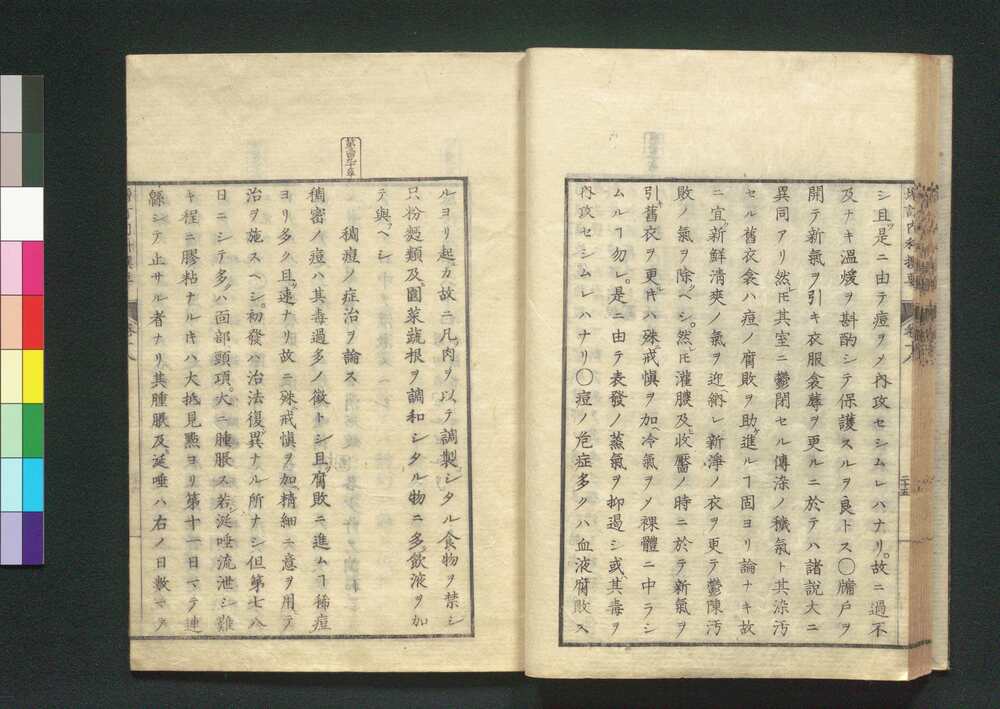 シ且是ニ由テ痘ヲメ內攻セシムレハナリ。故ニ過不
及ナキ溫煖ヲ斟酌シテ保護スルヲ良トス〇牖戸ヲ
開テ新氣ヲ引キ衣服衾蓐ヲ更ルニ於テハ諸說大ニ
異同アリ然𪜈其室ニ鬱閉セル傳染ノ穢氣ト其染汚
セル舊衣衾ハ痘ノ腐敗ヲ助ケ進ルヿ固ヨリ論ナキ故
ニ宜ク新鮮清爽ノ氣ヲ迎納レ新淨ノ衣ヲ更テ鬱陳汚
敗ノ氣ヲ除ベシ。然𪜈灌膿及收靨ノ時ニ於テ新氣ヲ
引キ舊衣ヲ更ルキハ殊ニ戒慎ヲ加ヘ冷氣ヲメ裸體ニ中ラシ
ムルヿ勿レ。是ニ由テ表發ノ蒸氣ヲ抑遏シ或ハ其毒ヲ
內攻セシムレハナリ〇痘ノ危症多クハ血液腐敗ス
二十五
ルヨリ起ル カ故ニ凡ソ肉ヲ以テ調製シタル食物ヲ禁シ
只粉麵類及ヒ園菜蔬根ヲ調和シタル物ニ多ク飲液ヲ加
テ與ヘシ
稠痘ノ症治ヲ論ス
稠密ノ痘ハ其毒過多ノ徵トシ且ツ腐敗ニ進ムヿ稀痘
ヨリ多ク且ツ速ナリ故ニ殊ニ戒慎ヲ加ヘ精細ニ意ヲ用ヒテ
治ヲ施スヘシ。初發ハ治法復異ナル所ナシ但第七八
日ニシテ多クハ面部頸項。大ニ腫脹ス若シ涎唾流泄シ難
キ程ニ膠粘ナルキハ大抵見㸃ヨリ第十一日マテ連
緜シテ止サル者ナリ其腫脹及ヒ涎唾ハ右ノ日數マテヲ